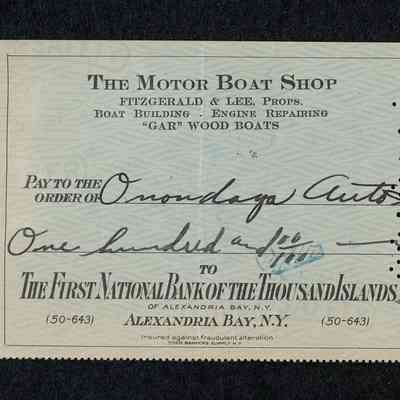 THE MOTOR BOAT SHOP
FITZGERALD & LEE, PROPS.
BOAT BUILDING - ENGINE REPAIRING
"GAR" WOOD BOATS
PAY TO THE
ORDER OF Onondaga Auto
One hundred and 00/100
TO
THE FIRST NATIONAL BANK OF THE THOUSAND ISLANDS
OF ALEXANDRIA BAY, N.Y.
(50-643) ALEXANDRIA BAY, N.Y. (50-643)
Insured against fraudulent alteration